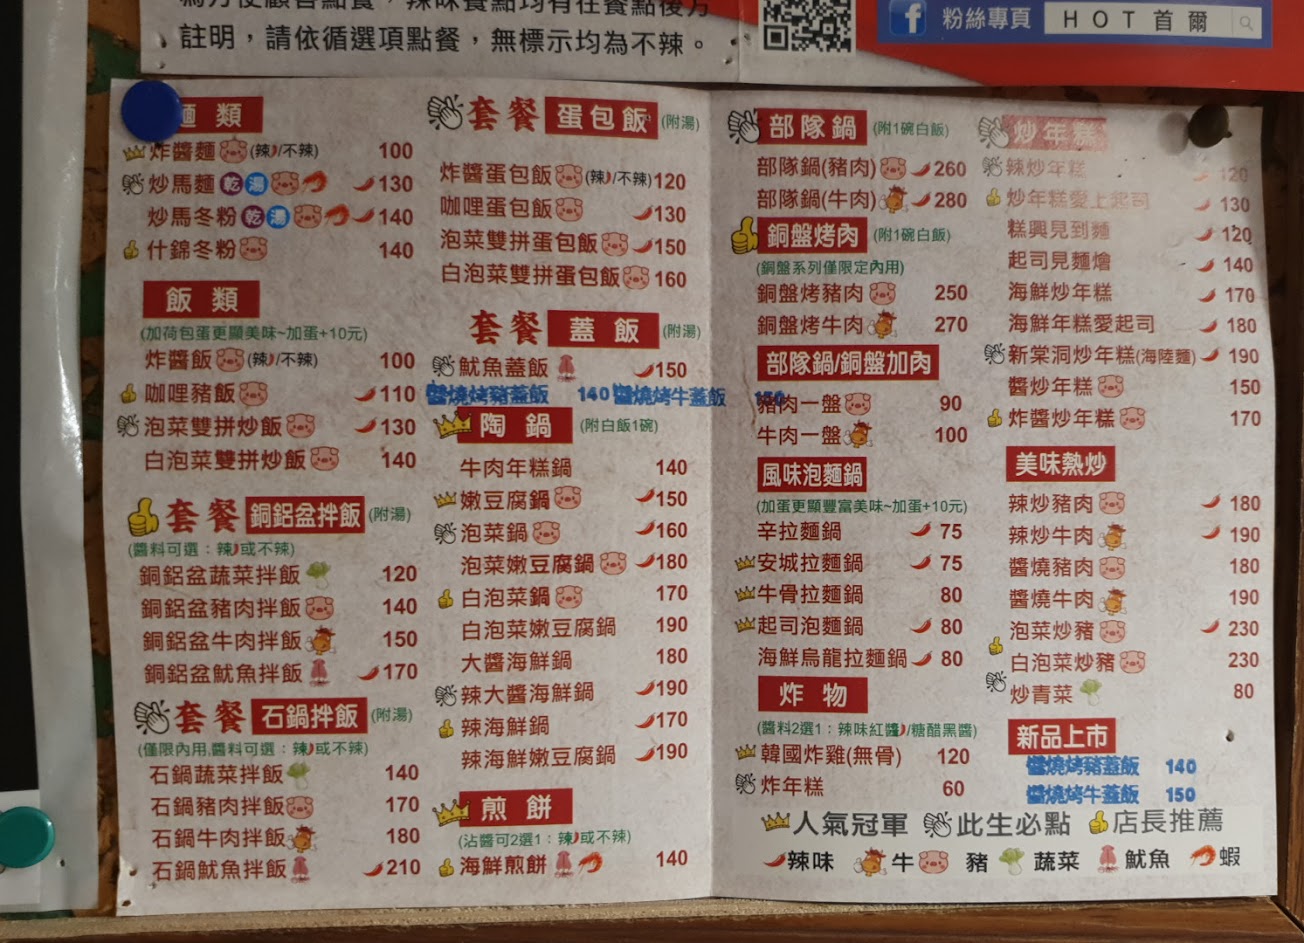 為方便顧客點餐，辣味餐點均有在餐點後方
註明，請依循選項點餐，無標示均為不辣。
粉絲專頁 HOT首爾
麵類
炸醬麵(辣/不辣) 100
炒馬麵 乾 湯 130
炒馬冬粉 乾 湯 140
什錦冬粉 140
飯類
(加荷包蛋更顯美味~加蛋+10元)
炸醬飯(辣/不辣) 100
咖哩豬飯 110
泡菜雙拼炒飯 130
白泡菜雙拼炒飯 140
套餐 銅鋁盆拌飯 (附湯)
(醬料可選：辣或不辣)
銅鋁盆蔬菜拌飯 120
銅鋁盆豬肉拌飯 140
銅鋁盆牛肉拌飯 150
銅鋁盆魷魚拌飯 170
套餐 石鍋拌飯 (附湯)
(僅限內用,醬料可選：辣或不辣)
石鍋蔬菜拌飯 140
石鍋豬肉拌飯 170
石鍋牛肉拌飯 180
石鍋魷魚拌飯 210
套餐 蛋包飯 (附湯)
炸醬蛋包飯(辣/不辣) 120
咖哩蛋包飯 130
泡菜雙拼蛋包飯 150
白泡菜雙拼蛋包飯 160
套餐 蓋飯 (附湯)
魷魚蓋飯 150
醬燒烤豬蓋飯 140 醬燒烤牛蓋飯 150
陶鍋 (附白飯1碗)
牛肉年糕鍋 140
嫩豆腐鍋 150
泡菜鍋 160
泡菜嫩豆腐鍋 180
白泡菜鍋 170
白泡菜嫩豆腐鍋 190
大醬海鮮鍋 180
辣大醬海鮮鍋 190
辣海鮮鍋 170
辣海鮮嫩豆腐鍋 190
煎餅
(沾醬可2選1：辣或不辣)
海鮮煎餅 140
部隊鍋 (附1碗白飯)
部隊鍋(豬肉) 260
部隊鍋(牛肉) 280
銅盤烤肉 (附1碗白飯)
(銅盤系列僅限定內用)
銅盤烤豬肉 250
銅盤烤牛肉 270
部隊鍋/銅盤加肉
豬肉一盤 90
牛肉一盤 100
風味泡麵鍋
(加蛋更顯豐富美味~加蛋+10元)
辛拉麵鍋 75
安城拉麵鍋 75
牛骨拉麵鍋 80
起司泡麵鍋 80
海鮮烏龍拉麵鍋 80
炸物
(醬料2選1：辣味紅醬/糖醋黑醬)
韓國炸雞(無骨) 120
炸年糕 60
炒年糕
辣炒年糕 120
炒年糕愛上起司 130
糕興見到麵 120
起司見麵燴 140
海鮮炒年糕 170
海鮮年糕愛起司 180
新棠洞炒年糕(海陸麵) 190
醬炒年糕 150
炸醬炒年糕 170
美味熱炒
辣炒豬肉 180
辣炒牛肉 190
醬燒豬肉 180
醬燒牛肉 190
泡菜炒豬 230
白泡菜炒豬 230
炒青菜 80
新品上市
醬燒烤豬蓋飯 140
醬燒烤牛蓋飯 150
人氣冠軍 此生必點 店長推薦
辣味 牛 豬 蔬菜 魷魚 蝦